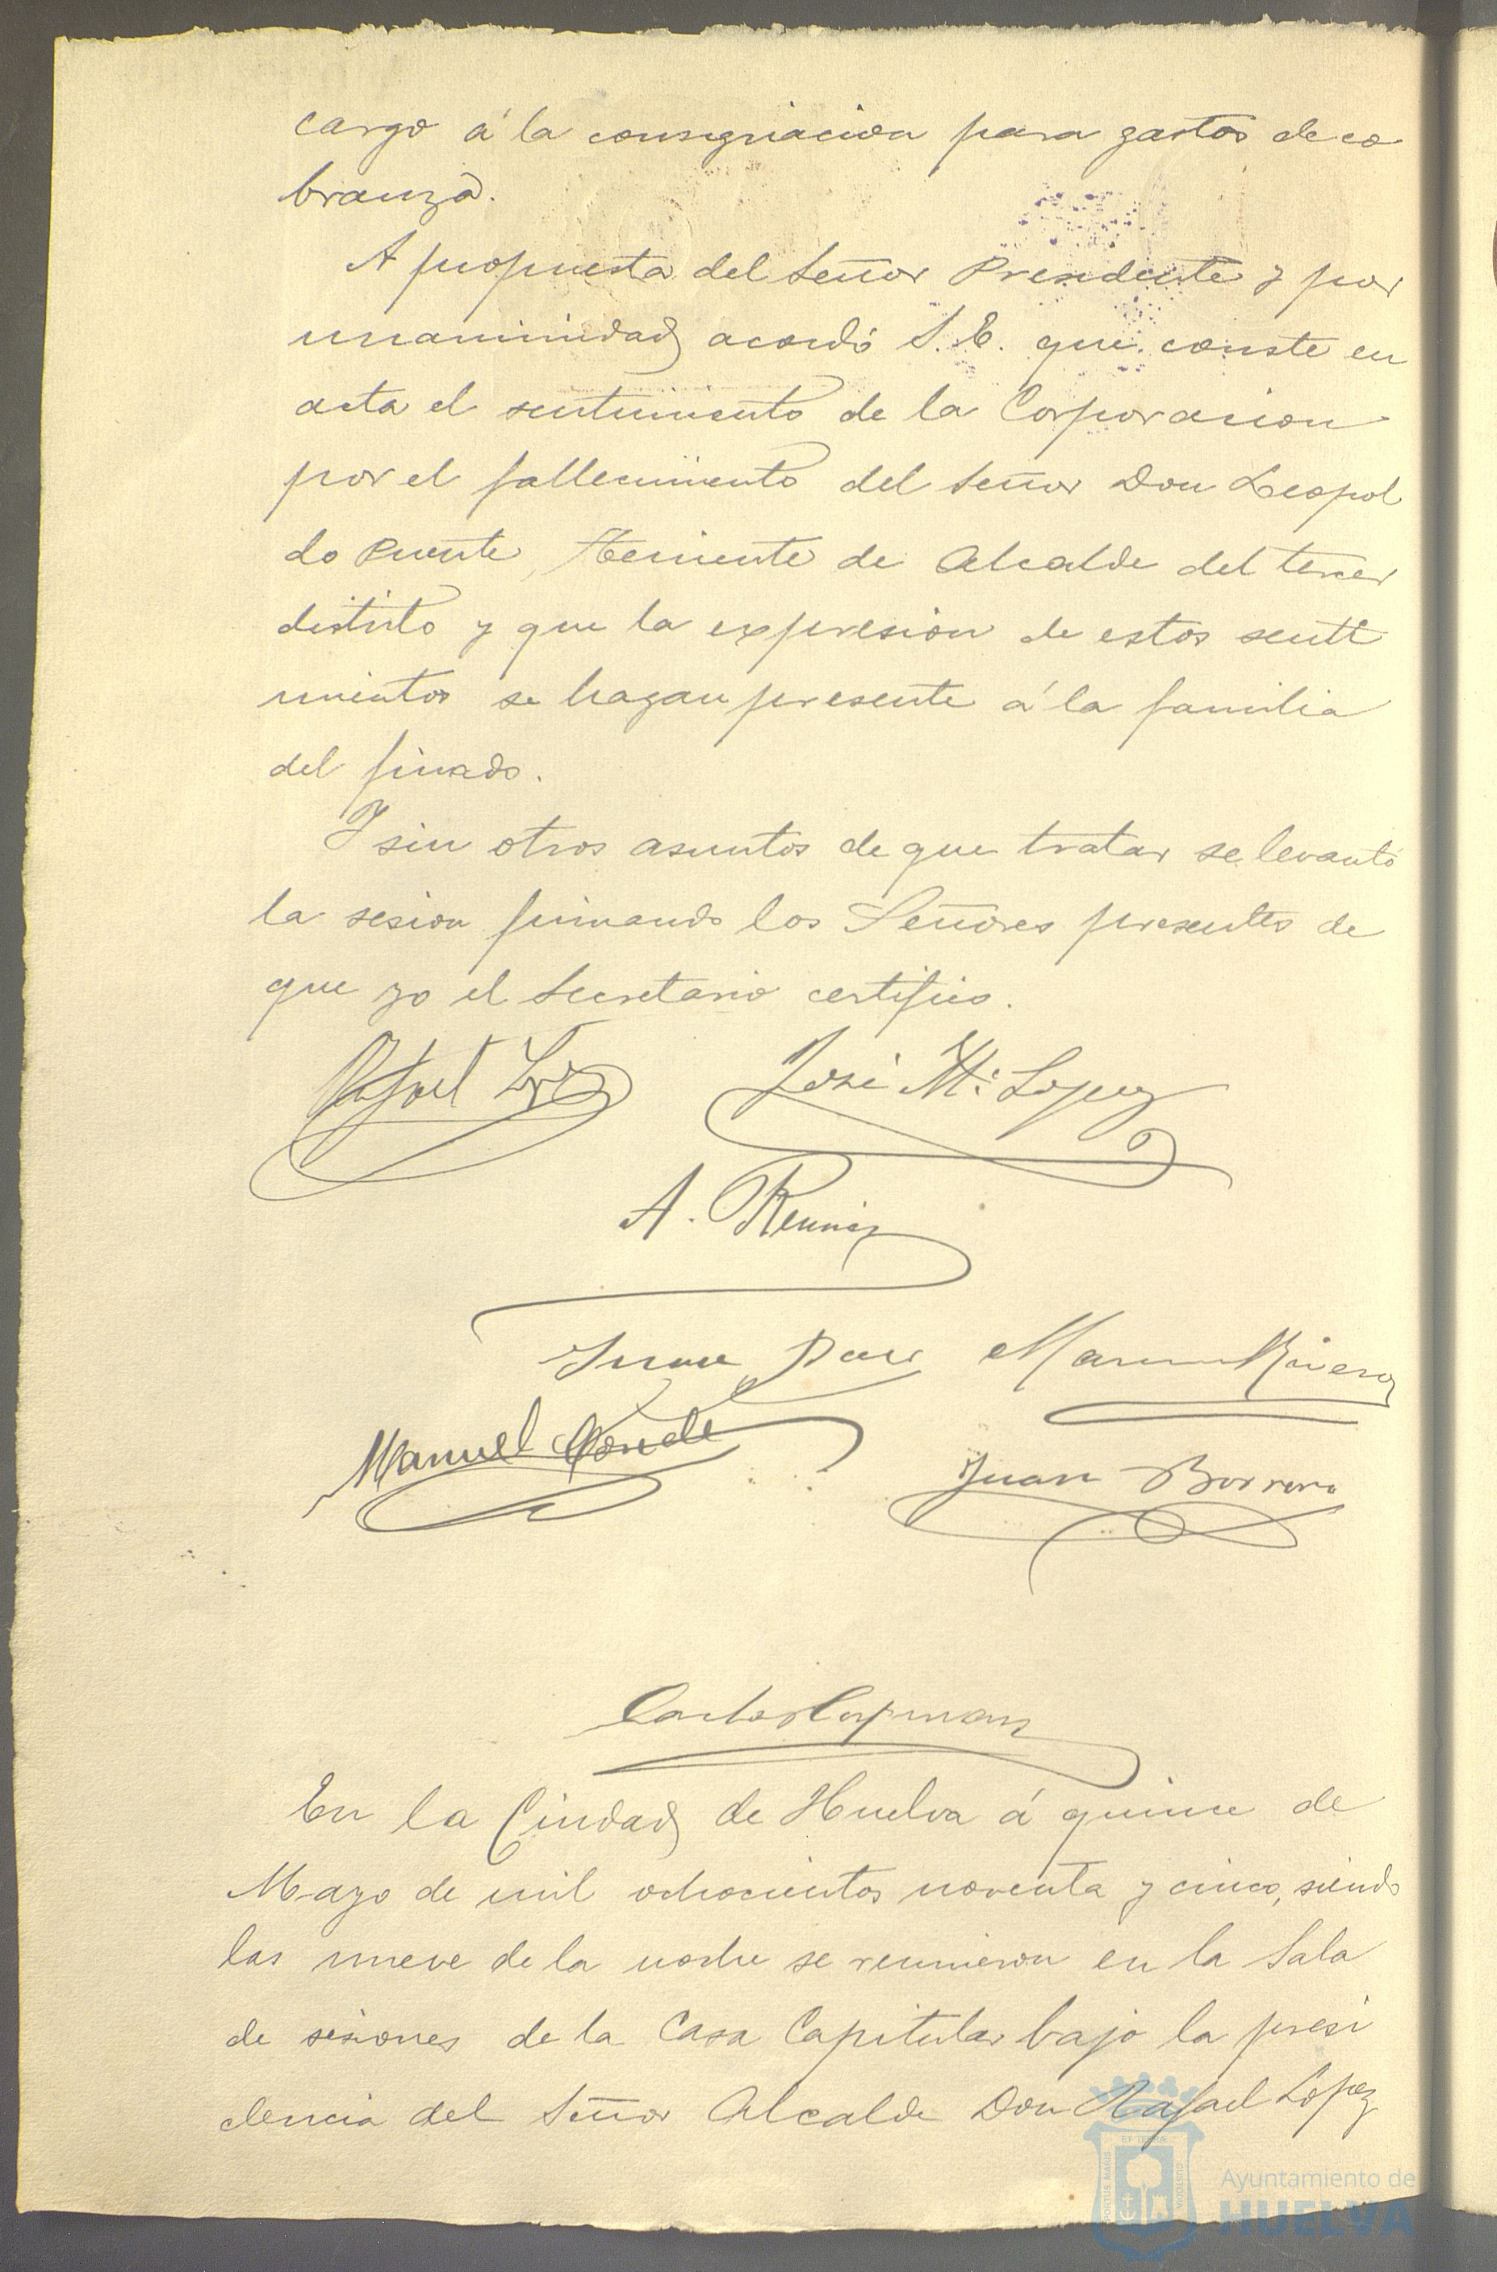 cargo á la consignacion para gastos de co
branza.
A propuesta del Señor Presidente y por
unanimidad acordó S. E. que conste en
acta el sentimiento de la Corporacion
por el fallecimiento del Señor Don Leopol
do Puente, Teniente de Alcalde del tercer
distrito y que la expresion de estos senti
mientos se hagan presente á la familia
del finado.
Y sin otros asuntos de que tratar se levantó
la sesion firmando los Señores presentes de
que yo el Secretario certifico.
Rafael López
José Mª Lopez
A.
Juan Manuel Rivera
Manuel Conde
Juan Borrero
Carlos
En la Ciudad de Huelva á quince de
Mayo de mil ochocientos noventa y cinco, siendo
las nueve de la noche se reunieron en la Sala
de sesiones de la Casa Capitular bajo la presi
dencia del Señor Alcalde Don Rafael López
Ayuntamiento de
HUELVA